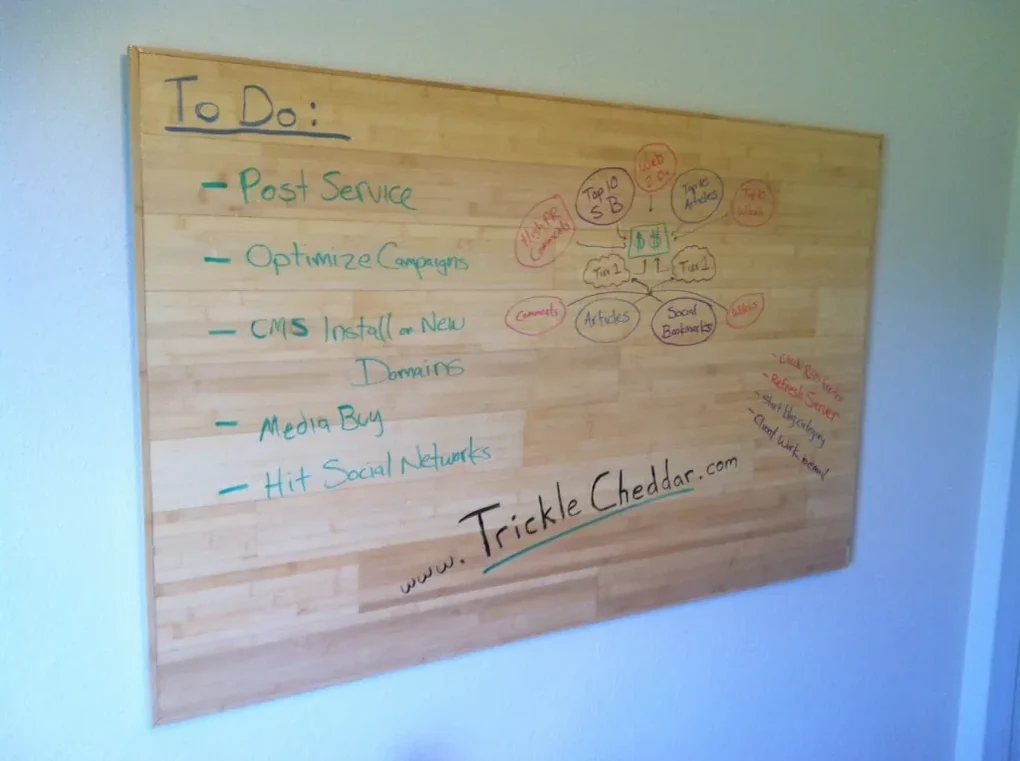 To Do:
- Post Service
- Optimize Campaigns
- CMS Install on New
Domains
- Media Buy
- Hit Social Networks
Web
2.0s
Top 10
SB
Top 10
Articles
Top 10
High PR
Comments
$ $
Tier 1
Tier 1
Comments
Articles
Social
Bookmarks
- Check RSS
- Refresh Server
- Start blog category
- Client Work
www.TrickleCheddar.com